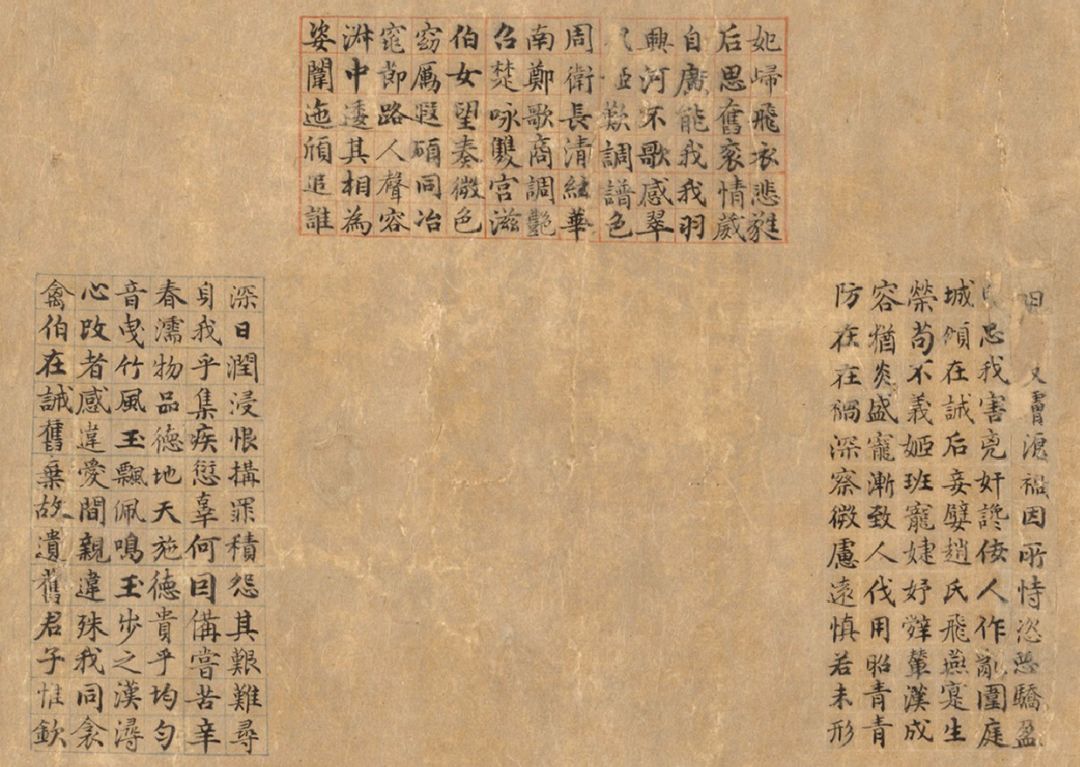 妃歸飛衣悲蕤
后思奮袞情葳
自廣能我我羽
興河不歌感翠
姬歎調譜色
周衛長清絃華
南鄭歌商調艷
召楚咏雙宮滋
伯女望奏微色
窈厲遐碩同冶
窕節路人聲容
淑中逶其相為
姿闈迤頎追誰
禍因所恃恣驕盈
忠我害兇奸讒佞人作亂圍庭
城傾在誡后妾嬖趙氏飛燕寔生
榮苟不義姬班寵婕妤辭輦漢成
容猶炎盛寵漸致人伐用昭青青
防在在禍深察微慮遠慎若未形
深日潤浸恨搆罪積怨其艱難尋
身我乎集疾愆辜何因備嘗苦辛
春濡物品德地天施德貴乎均勻
音曳竹風玉飄佩鳴玉步之漢潯
心改者感違愛間親違殊我同衾
禽伯在誡舊棄故遺舊君子惟欽